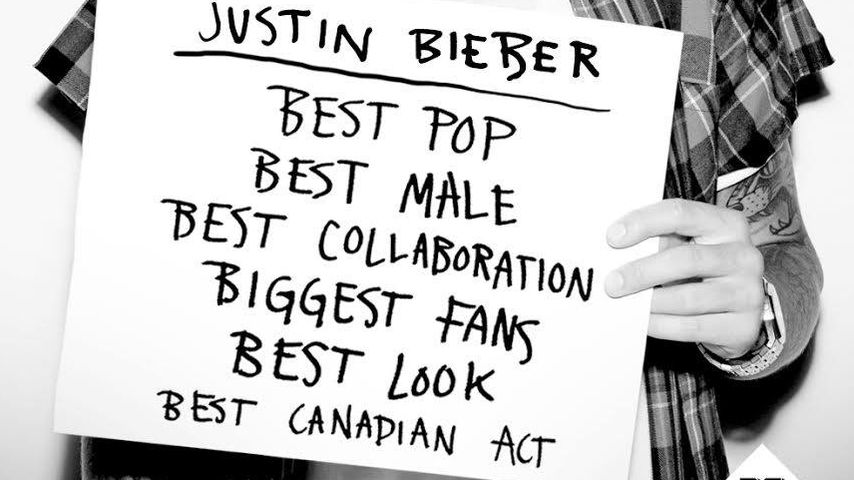 JUSTIN BIEBER
BEST POP
BEST MALE
BEST COLLABORATION
BIGGEST FANS
BEST LOOK
BEST CANADIAN ACT